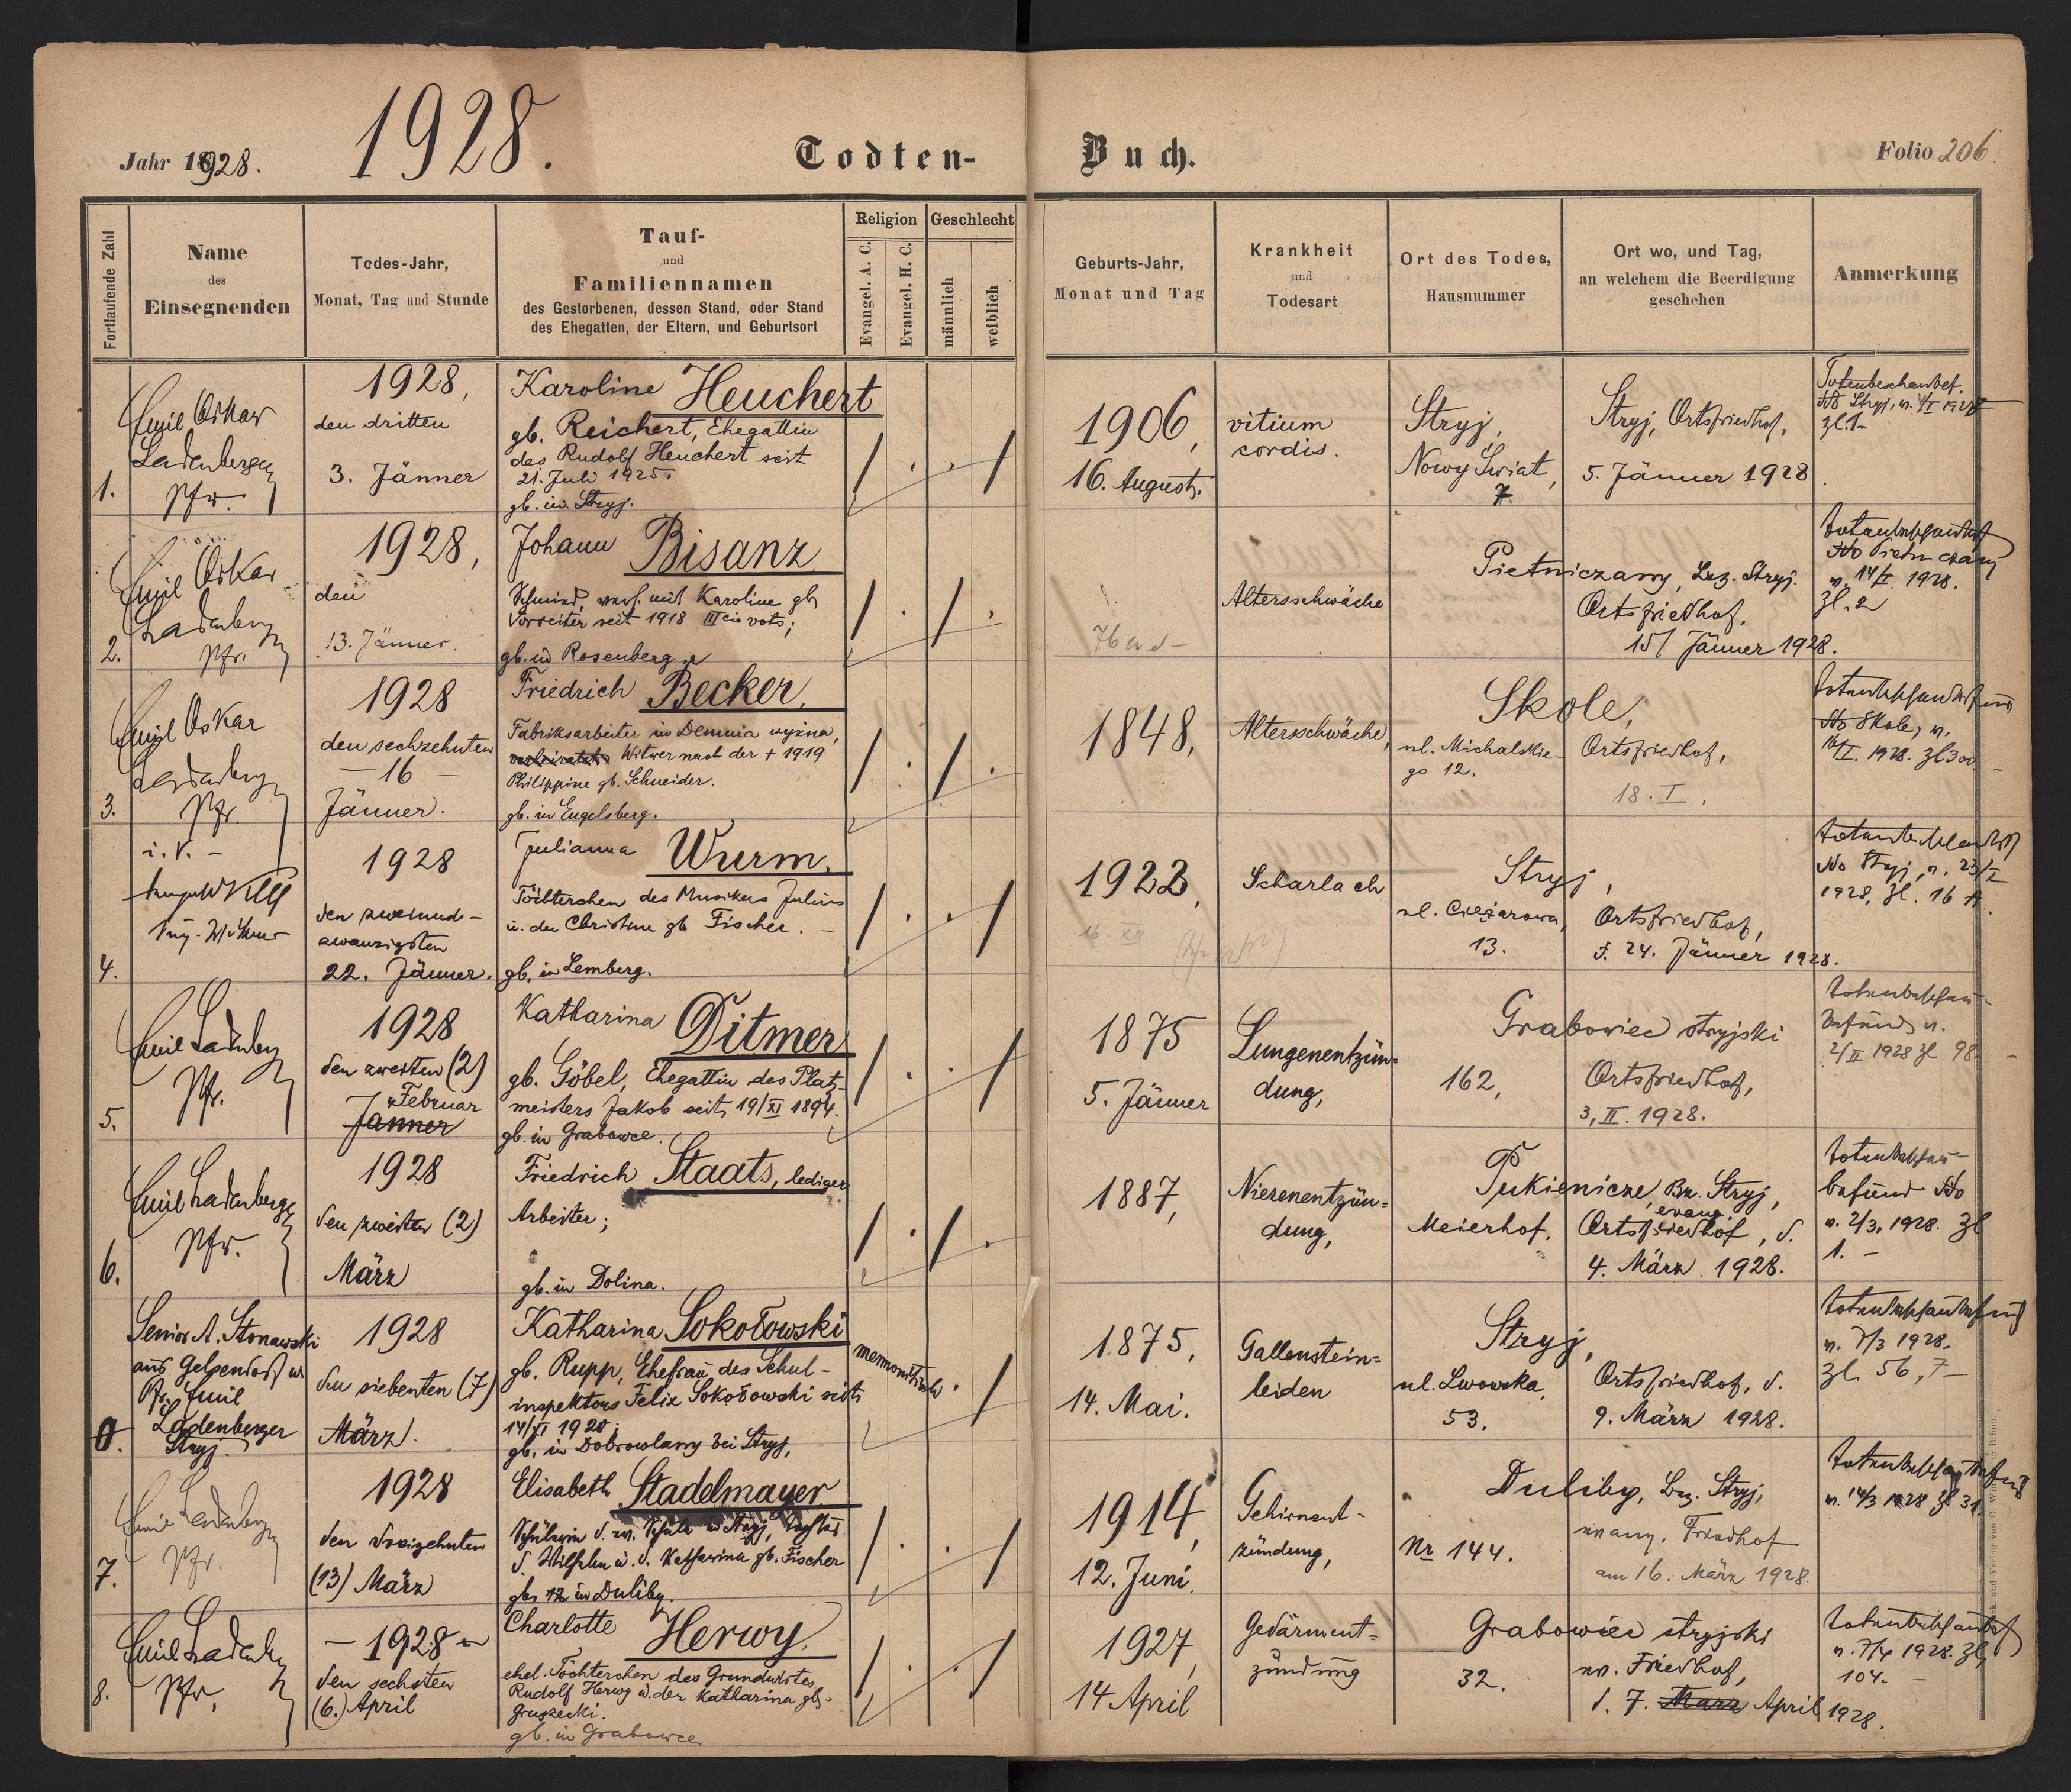 Jahr 1928.
1928.
Todten-
Buch.
Folio 206.
Fortlaufende Zahl
Name
des
Einsegnenden
Todes-Jahr,
Monat, Tag und Stunde
Tauf-
und
Familiennamen
des Gestorbenen, dessen Stand, oder Stand
des Ehegatten, der Eltern, und Geburtsort
Religion
Evangel. A. C.
Evangel. H. C.
Geschlecht
männlich
weiblich
Geburts-Jahr,
Monat und Tag
Krankheit
und
Todesart
Ort des Todes,
Hausnummer
Ort wo, und Tag,
an welchem die Beerdigung
geschehen
Anmerkung
1.
Emil Oskar
Ladenberger
Pfr.
1928,
den dritten
3. Jänner
Karoline Heuchert
gb. Reichert, Ehegattin
des Rudolf Heuchert seit
21. Juli 1925.
gb. in Stryj.
1906,
16. August.
vitium
cordis.
Stryj,
Nowy Swiat,
7
Stryj, Ortsfriedhof,
5. Jänner 1928
Totenbeschaubef.
ddo Stryj, v. 4/I 1928
zl. 1-
2.
Emil Oskar
Ladenberger
Pfr.
1928,
den
13. Jänner.
Johann Bisanz
Schmied, verh. mit Karoline gb
Vorreiter seit 1918 III cis votis;
gb. in Rosenberg.
76
Altersschwäche
Pietniczany, Bez. Stryj.
Ortsfriedhof,
15/ Jänner 1928.
ddo Pietniczany
v. 14/I. 1928.
Zl. 2
3.
Emil Oskar
Ladenberger
Pfr.
1928
den sechzehnten
– 16 –
Jänner.
Friedrich Becker,
Fabriksarbeiter in Demnia wyzna,
verheiratet Witwer nach der + 1919
Philippine gb. Schneider.
gb. in Engelsberg.
1848,
Altersschwäche,
Skole,
ul. Michalskie-
go 12.
Ortsfriedhof,
18. I.
ddo Skole, v.
16/I. 1928. Zl 300
4.
i. V. –
1928
den zweiund-
zwanzigsten
22. Jänner.
Julianna Wurm.
Töchterchen des Musikers Julius
u. der Christine gb Fischer. –
gb. in Lemberg.
1923,
16. XII
Scharlach
Stryj,
ul. Ciezarowa,
13.
Ortsfriedhof,
d. 24. Jänner 1928.
ddo Stryj, v. 23/I
1928, Zl. 16
5.
Emil Ladenberger
Pfr.
1928
den zweiten (2)
Februar
Jänner
Katharina Ditmer
gb. Göbel, Ehegattin des Platz-
meisters Jakob seit 19/XI 1894.
gb. in Grabowce.
1875
5. Jänner
Lungenentzün=
dung,
Grabowiec stryjski
162,
Ortsfriedhof,
3, II. 1928.
Totenbeschau-
befund v.
2/II 1928 Zl 98. –
6.
Emil Ladenberger
Pfr.
1928
den zweiten (2)
März
Friedrich Staats, lediger
Arbeiter;
gb. in Dolina.
1887,
Nierenentzün=
dung,
Tukienicze, Bz. Stryj,
Meierhof,
evang.
Ortsfriedhof, d.
4. März. 1928.
Totenbeschau-
befund ddo
v. 2/3, 1928. Zl
1. –
0.
Senior A. Stonawski
aus Gelsendorf u.
Pfr. Emil
Ladenberger
Stryj.
1928
den siebenten (7)
März.
Katharina Sokołowski
gb. Rupp, Ehefrau des Schul-
inspektors Felix Sokołowski seit
14/VI 1920;
gb. in Dobrowlany bei Stryj,
mennonitisch
1875,
14. Mai.
Gallenstein=
leiden
Stryj,
ul. Lwowska,
53.
Ortsfriedhof, d.
9. März 1928.
Totenbeschaubefund
v. 7/3 1928.
Zl. 56, 7 –
7.
Emil Ladenberger
Pfr.
1928
den dreizehnten
(13) März
Elisabeth Stadelmayer
Schülerin d. ev. Schule in Stryj, Tochter
d. Wilhelm u. d. Katharina gb. Fischer
gb. in Duliby.
1914,
12. Juni.
Gehirnent-
zündung,
Duliby, Bz. Stryj,
Nr 144.
evang. Friedhof
am 16. März 1928.
Totenbeschaubefund
v. 14/3 1928 Zl 31.
8.
Emil Ladenberger
Pfr.
– 1928 –
den sechsten
(6.) April
Charlotte Herwy.
ehel. Töchterchen des Grundwirtes
Rudolf Herwy u. der Katharina gb.
Gruszecki.
gb. in Grabowce
1927,
14 April
Gedärment=
zündung
Grabowiec stryjski
32.
ev. Friedhof,
d. 7. März April 1928.
Totenbeschaubef
v. 7/4 1928. Zl,
104. –